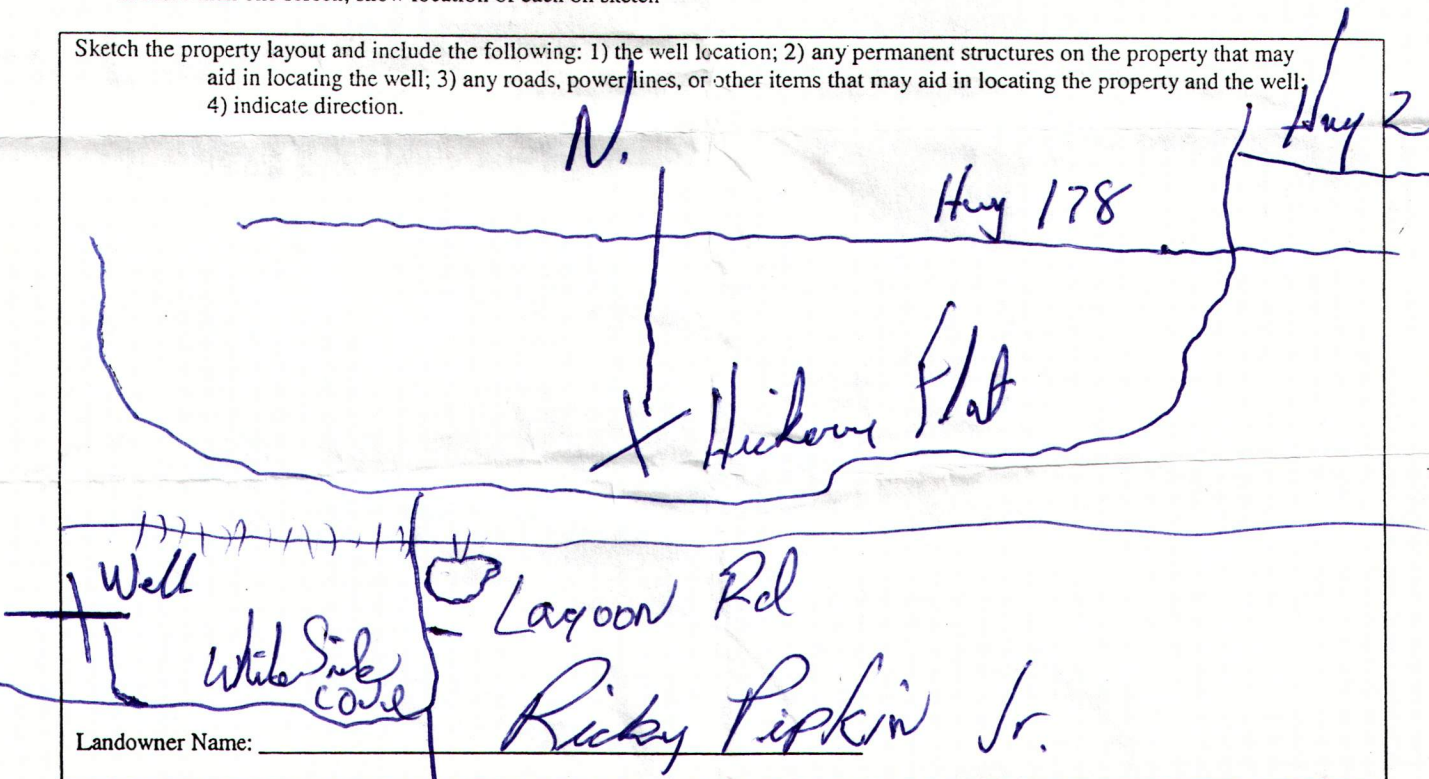 Sketch the property layout and include the following: 1) the well location; 2) any permanent structures on the property that may
aid in locating the well; 3) any roads, power lines, or other items that may aid in locating the property and the well;
4) indicate direction.
N.
Hwy 2
Hwy 178
Hickory Flat
Well
Lagoon Rd
White
cove
Ricky Pipkin Jr.
Landowner Name: